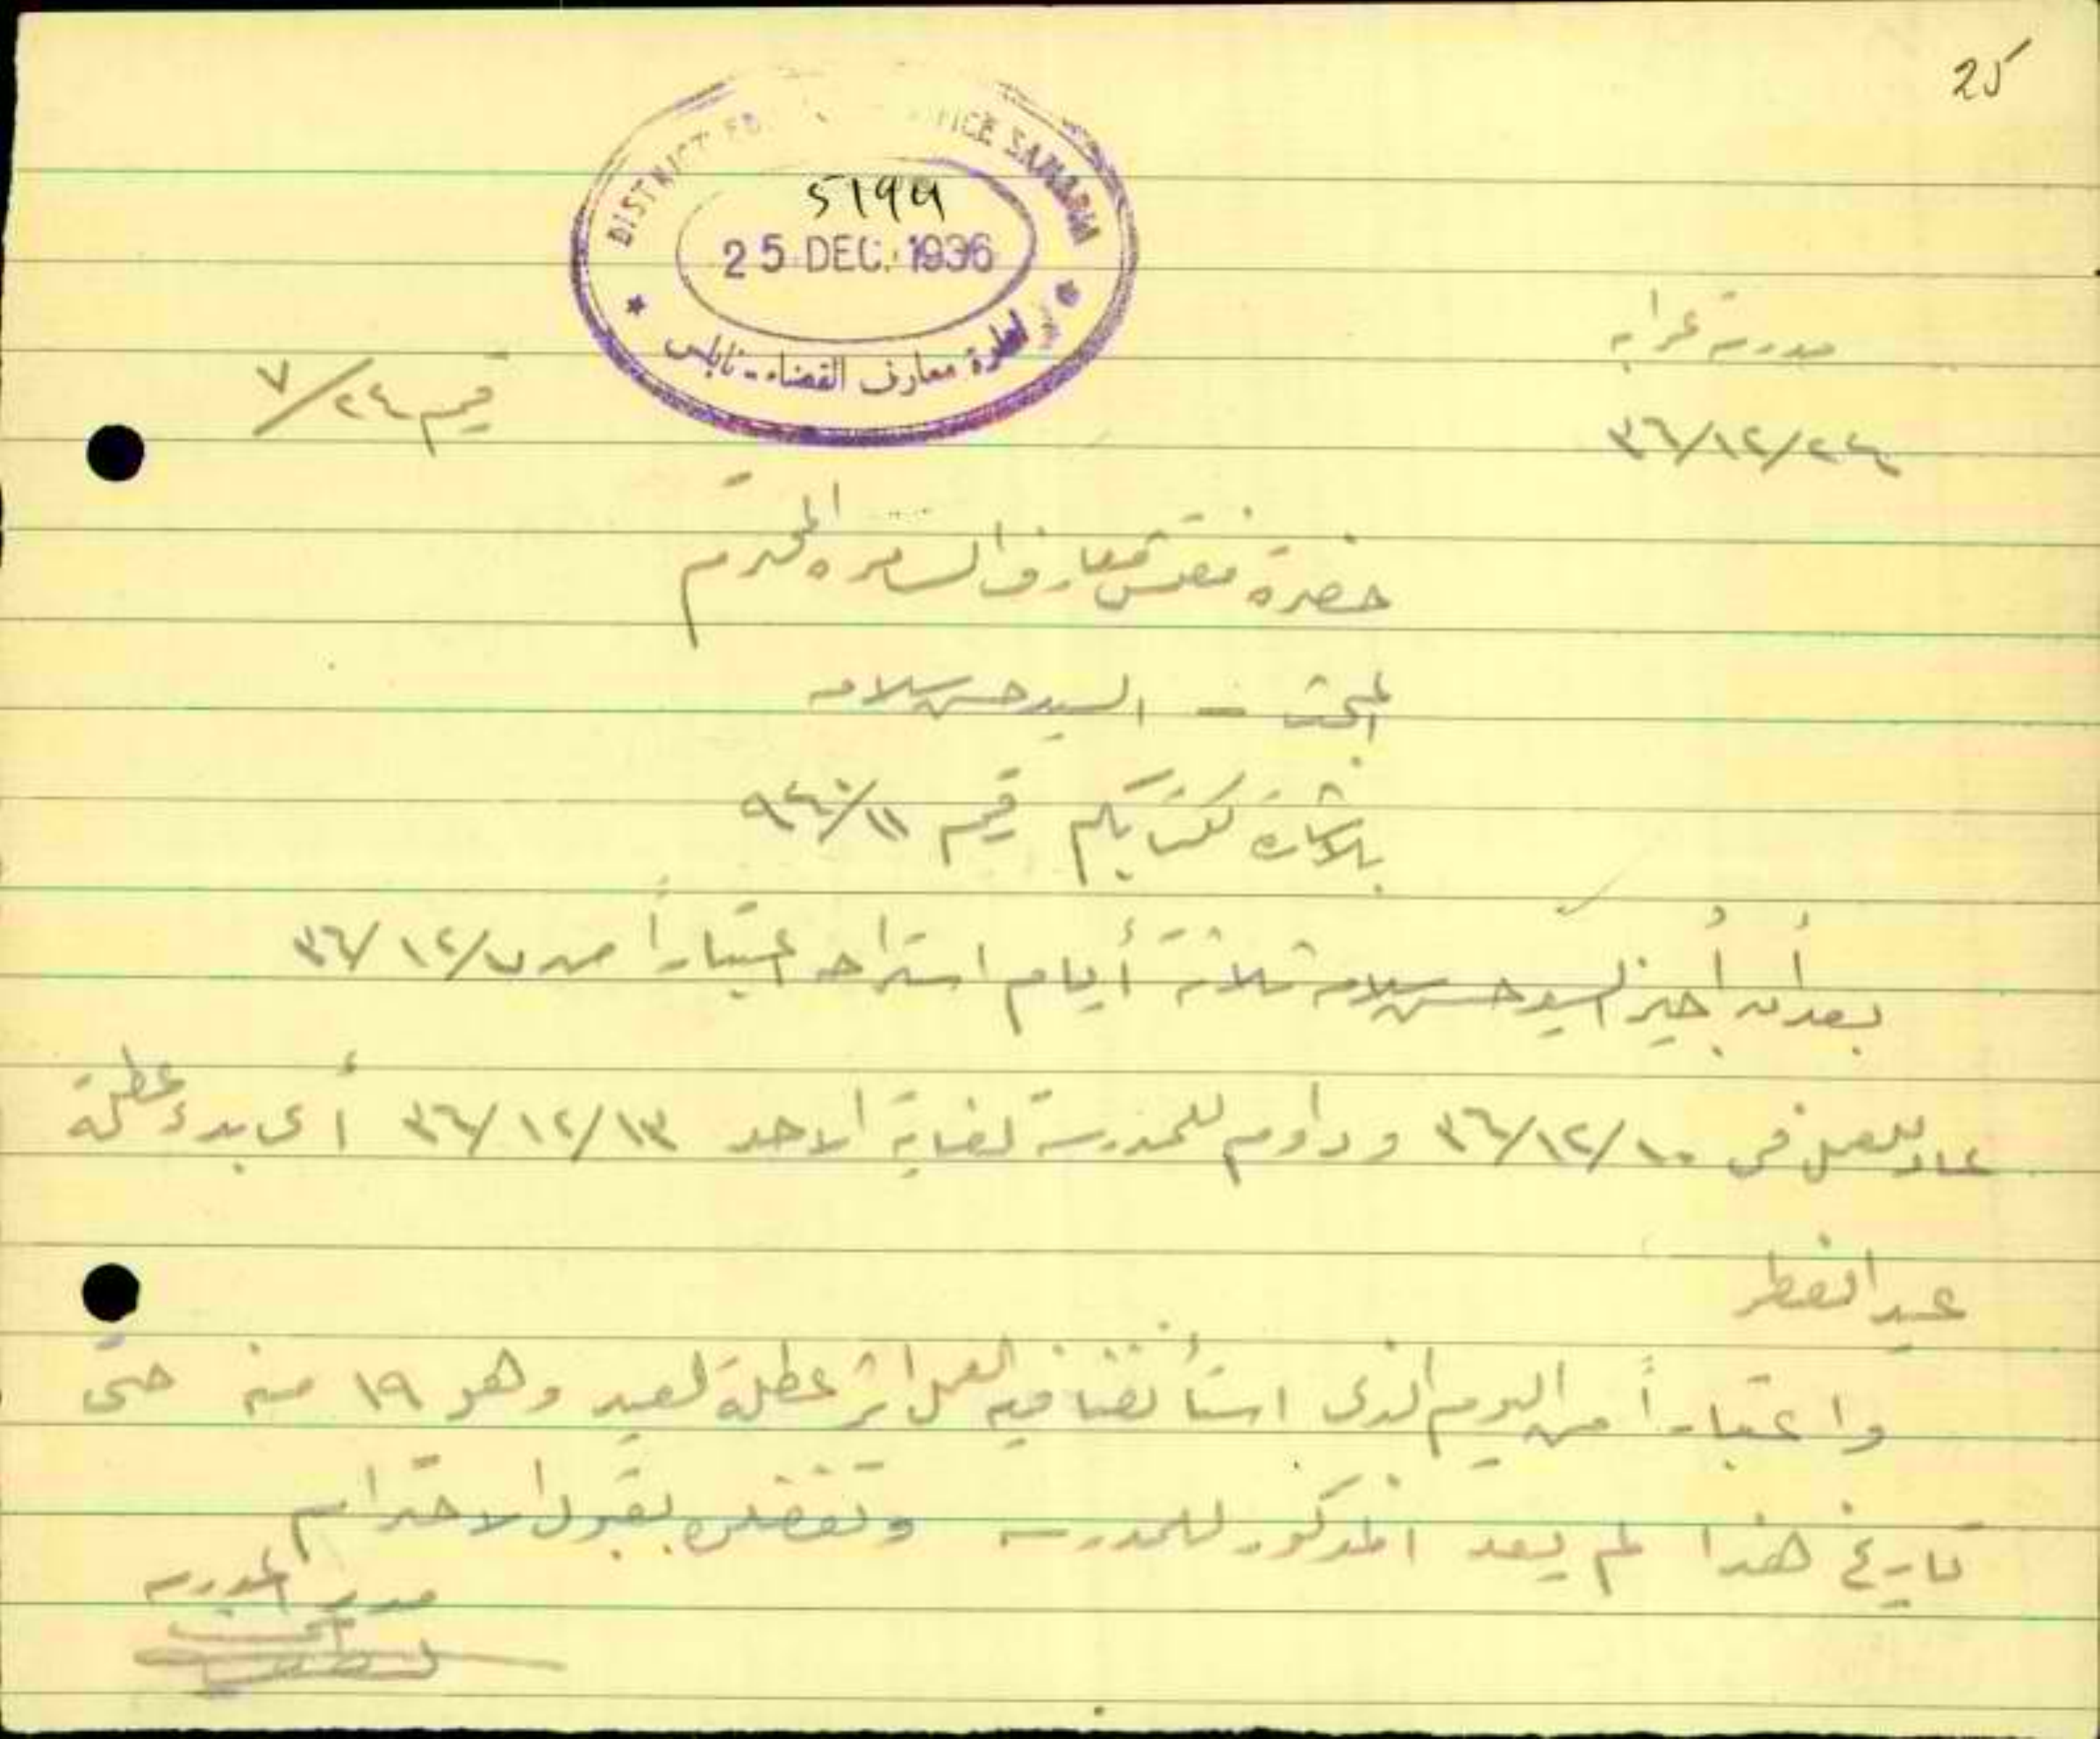 25
DISTRICT ED FFICE SAMARIA
5199
25 DEC. 1936
معارف القضاء - نابلس
مدرسة عرابه
رقم ٧/٢٤
٣٦/١٢/٢٤
حضرة مفتش معارف السامره المحترم
المبحث - السيد حسن سلامه
بالاشارة لكتابكم رقم
بعد أن أُجيز السيد حسن سلامه ثلاثة أيام استراحه اعتباراً من ٣٦/١٢/٧
عاد للعمل في ٣٦/١٢/١٠ وداوم للمدرسة لغاية الاحد ٣٦/١٢/١٣ أي بدء عطلة
عيد الفطر
واعتباراً من اليوم الذي استأنفنا فيه العمل اثر عطلة العيد وهو ١٩ منه حتى
تاريخ هذا لم يعد المذكور للمدرسه وتفضلوا بقبول الاحترام
مدير المدرسه